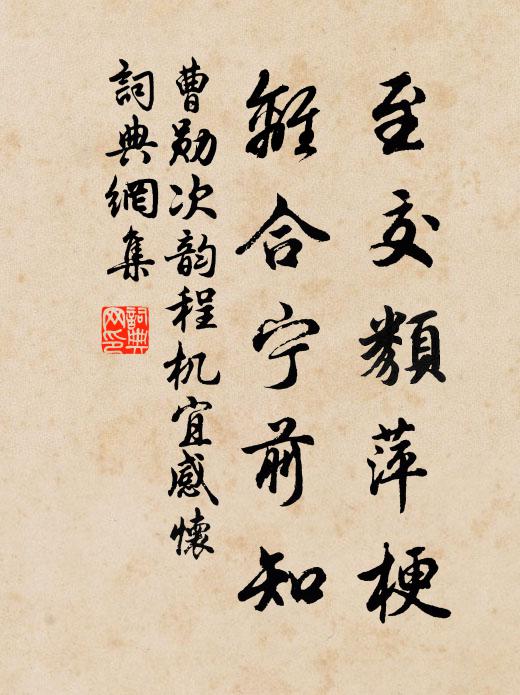 至交類萍梗
離合宁前知
曹勛次韵程机宜感懷
詞典網集
詞典網印